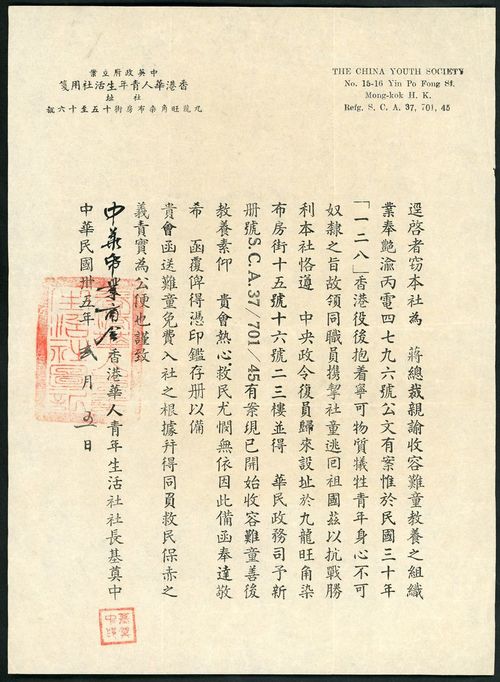 中英政府立案
香港華人青年生活社用箋
社 址
九龍旺角染布房街十五至十六號
THE CHINA YOUTH SOCIETY
No. 15-16 Yin Po Fong St.
Mong-kok H. K.
Refg. S. C. A. 37, 701, 45
逕啓者窃本社為　蔣總裁親諭收容難童教養之組織
業奉艶渝丙電四七九六號公文有案惟於民國三十年
「一二八」香港役後抱着寧可物質犧牲青年身心不可
奴隸之旨故領同職員携挈社童逃回祖國茲以抗戰勝
利本社恪遵　中央政令復員歸來設址於九龍旺角染
布房街十五號十六號二三樓並得　華民政務司予新
册號S.C.A.37/701/45有案現已開始收容難童善後
教養素仰　貴會熱心救民尤憫無依因此備函奉達敬
希　函覆俾得憑印鑑存册以備
貴會函送難童免費入社之根據幷得同員救民保赤之
義責實為公便也謹致
中華帋業商会 香港華人青年生活社社長基奠中
中華民國卅五年 弍月 五日